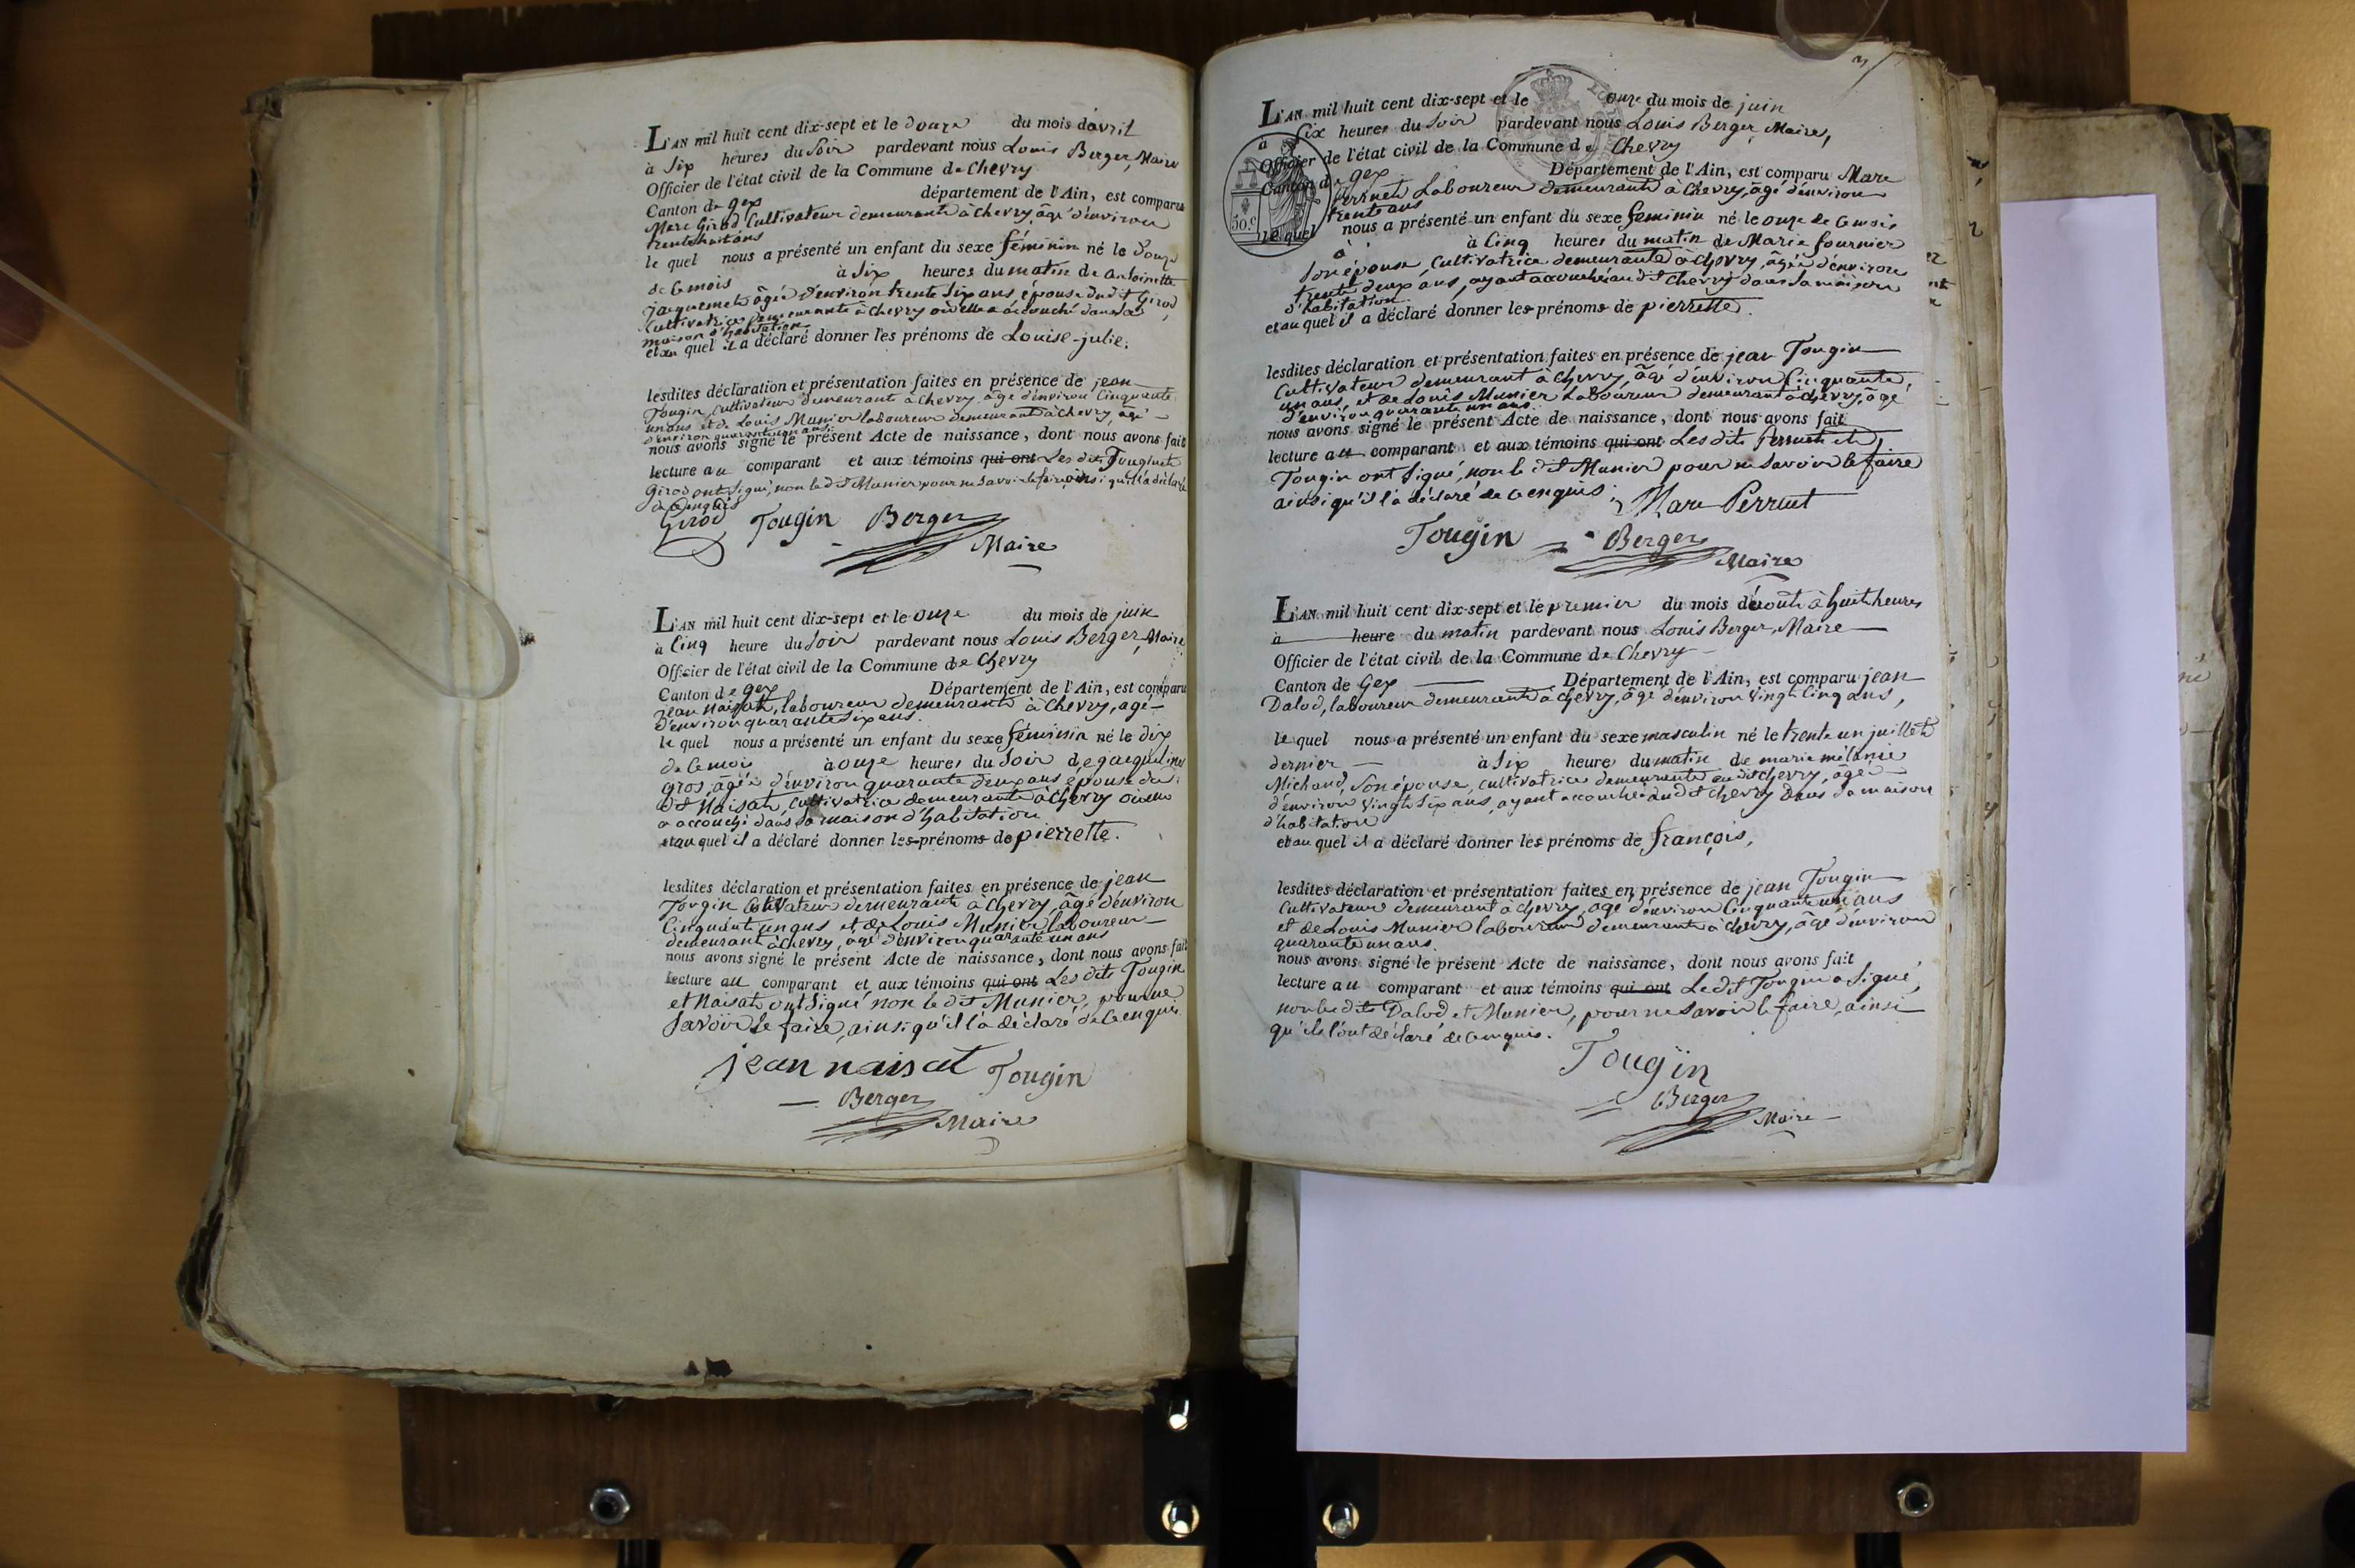 L'AN mil huit cent dix-sept et le douze du mois d'avril
à Six heures du Soir pardevant nous Louis Berger, Maire
Officier de l'état civil de la Commune de Chevry
Canton de gex département de l'Ain, est comparu
Marc Girod Cultivateur demeurant à Chevry, âgé d'environ
trente huit ans
le quel nous a présenté un enfant du sexe féminin né le Douze
de ce mois à Six heures du matin de antoinette
jacquemet âgée d'environ trente Six ans épouse dudit Girod,
Cultivatrice demeurante à Chevry où elle a accouché dans sa
maison d'habitation
et au quel il a déclaré donner les prénoms de Louise-julie.
lesdites déclaration et présentation faites en présence de jean
Tougin, Cultivateur demeurant à Chevry âgé d'environ Cinquante
un ans et de Louis Munier laboureur demeurant à chevry, âgé
d'environ quarante un ans.
nous avons signé le présent Acte de naissance, dont nous avons fait
lecture au comparant et aux témoins qui ont Les dits Tougin et
Girod ont Signé, non le dit Munier pour ne Savoir le faire, ainsi qu'il l'a déclaré
de ce enquis
Girod Tougin Berger
Maire
L'AN mil huit cent dix-sept et le onze du mois de juin
à Cinq heure du Soir pardevant nous Louis Berger, Maire
Officier de l'état civil de la Commune de Chevry
Canton de gex Département de l'Ain, est comparu
jean Naisat, laboureur demeurant à Chevry, agé
d'environ quarante Six ans.
le quel nous a présenté un enfant du sexe féminin né le dix
de ce mois à onze heures du Soir de jacqueline
gros, âgée d'environ quarante deux ans épouse du
dit Naisat, Cultivatrice demeurante à Chevry où elle
a accouché dans sa maison d'habitation
et au quel il a déclaré donner les prénoms de pierrette.
lesdites déclaration et présentation faites en présence de jean
Tougin Cultivateur demeurant à Chevry, âgé d'environ
Cinquante un ans et de Louis Munier laboureur
demeurant à Chevry, âgé d'environ quarante un ans
nous avons signé le présent Acte de naissance, dont nous avons fait
lecture au comparant et aux témoins qui ont Les dits Tougin
et Naisat ont Signé non le dit Munier, pour ne
Savoir le faire, ainsi qu'il l'a déclaré de ce enquis
jean naisat Tougin
Berger
Maire
3
L'AN mil huit cent dix-sept et le onze du mois de juin
à Six heures du Soir pardevant nous Louis Berger, Maire,
Officier de l'état civil de la Commune de Chevry
Canton de gex Département de l'Ain, est comparu Marc
Perruet Laboureur demeurant à Chevry, âgé d'environ
trente ans
50 c
le quel nous a présenté un enfant du sexe féminin né le onze de ce mois
à Cinq heures du matin de Marie fournier
Son épouse, Cultivatrice demeurante à Chevry, âgée d'environ
trente deux ans, ayant accouché au dit Chevry dans Sa maison
d'habitation
et au quel il a déclaré donner les prénoms de pierrette.
lesdites déclaration et présentation faites en présence de jean Tougin
Cultivateur demeurant à Chevry, âgé d'environ Cinquante,
un ans, et de Louis Munier Laboureur demeurant à chevry, âgé
d'environ quarante un ans.
nous avons signé le présent Acte de naissance, dont nous avons fait
lecture au comparant et aux témoins qui ont Les dits Perruet et
Tougin ont Signé, non le dit Munier pour ne Savoir le faire
ainsi qu'il l'a déclaré de ce enquis.
Marc Perruet
Tougin Berger
Maire
L'AN mil huit cent dix-sept et le premier du mois d'août à huit heures
à heure du matin pardevant nous Louis Berger, Maire
Officier de l'état civil de la Commune de Chevry
Canton de Gex Département de l'Ain, est comparu jean
Dalod, laboureur demeurant à Chevry, âgé d'environ Vingt Cinq ans,
le quel nous a présenté un enfant du sexe masculin né le trente un juillet
dernier à Six heures du matin de marie mélanie
Michaud, Son épouse, cultivatrice demeurante au dit Chevry, âgée
d'environ Vingt Six ans, ayant accouché au dit Chevry Dans Sa maison
d'habitation
et au quel il a déclaré donner les prénoms de françois,
lesdites déclaration et présentation faites en présence de jean Tougin
Cultivateur demeurant à Chevry, agé d'environ Cinquante un ans
et de Louis Munier laboureur demeurant à Chevry, âgé d'environ
quarante un ans.
nous avons signé le présent Acte de naissance, dont nous avons fait
lecture au comparant et aux témoins qui ont Le dit Tougin a Signé,
non les dits Dalod et Munier, pour ne Savoir le faire, ainsi
qu'ils l'ont déclaré de ce enquis.
Tougin
Berger
Maire